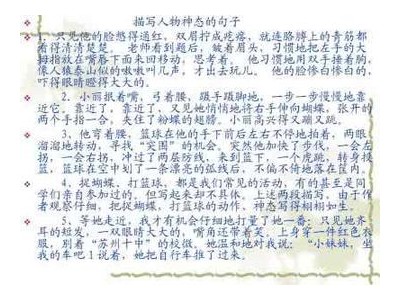 描写人物神态的句子
1、只见他的脸憋得通红,双眉拧成疙瘩,就连胳膊上的青筋都
看得清清楚楚。老师看到题后,皱着眉头,习惯地把右手的大
拇指放在嘴唇下面来回移动,思考着。他习惯地用双手搂着胸,
像人猿泰山似的嗷嗷叫几声,才出去玩儿。他的脸惨白惨白的,
吓得眼睛瞪得大大的。
2、小丽抿着嘴,弓着腰,蹑手蹑脚地,一步一步慢慢地靠
近它。靠近了,靠近了,又见她悄悄地将右手伸向蝴蝶,张开的
两个手指一合,夹住了粉蝶的翅膀。小丽高兴得又蹦又跳。
3、他弯着腰,篮球在他的手下前后左右不停地拍着,两眼
溜溜地转动,寻找“突围”的机会。突然他加快了步伐,一会左
拐,一会右拐,冲过了两层防线,来到篮下,一个虎跳,转身投
篮,篮球在空中划了一条漂亮的弧线后,不偏不倚地落在筐内。
4、捉蝴蝶、打篮球,都是我们常见的活动,有的甚至是同
学们亲自参加过的。但写起来却不具体。上述两段描写,由于作
者观察仔细,把捉蝴蝶,打篮球的动作、神态写得栩栩如生。
5、等她走近,我才有机会仔细地打量了她一番:只见她齐
耳的短发,一双眼睛大大的,嘴角还带着笑。上身穿一件红色衣
服,别着“苏州十中”的校徽。她温和地对我说:“小妹妹,坐
我的车吧!说着,她把自行车推了过来。